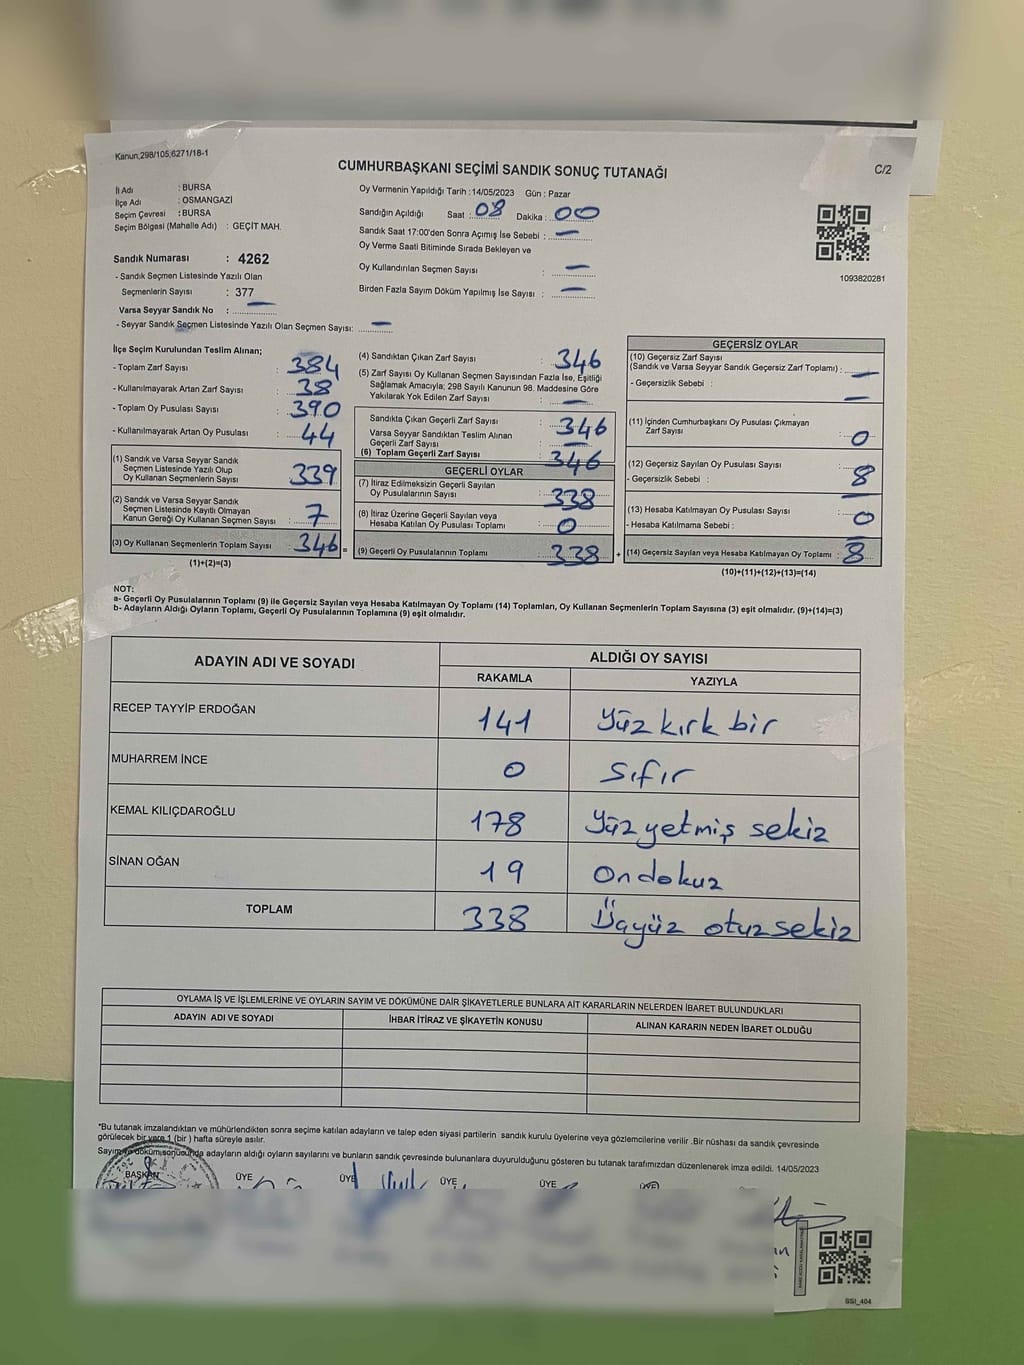 Kanun,298/105,6271/18-1
CUMHURBAŞKANI SEÇİMİ SANDIK SONUÇ TUTANAĞI
C/2
İl Adı : BURSA
İlçe Adı : OSMANGAZİ
Seçim Çevresi : BURSA
Seçim Bölgesi (Mahalle Adı) : GEÇİT MAH.
Oy Vermenin Yapıldığı Tarih :14/05/2023 Gün : Pazar
Sandığın Açıldığı Saat : 08 Dakika : 00
Sandık Saat 17:00'den Sonra Açımış İse Sebebi : —
Oy Verme Saati Bitiminde Sırada Bekleyen ve
Oy Kullandırılan Seçmen Sayısı : —
Birden Fazla Sayım Döküm Yapılmış İse Sayısı : —
1093820281
Sandık Numarası : 4262
- Sandık Seçmen Listesinde Yazılı Olan
Seçmenlerin Sayısı : 377
Varsa Seyyar Sandık No : —
- Seyyar Sandık Seçmen Listesinde Yazılı Olan Seçmen Sayısı: —
İlçe Seçim Kurulundan Teslim Alınan;
- Toplam Zarf Sayısı : 384
- Kullanılmayarak Artan Zarf Sayısı : 38
- Toplam Oy Pusulası Sayısı : 390
- Kullanılmayarak Artan Oy Pusulası : 44
(1) Sandık ve Varsa Seyyar Sandık
Seçmen Listesinde Yazılı Olup
Oy Kullanan Seçmenlerin Sayısı : 339
(2) Sandık ve Varsa Seyyar Sandık
Seçmen Listesinde Kayıtlı Olmayan
Kanun Gereği Oy Kullanan Seçmen Sayısı : 7
(3) Oy Kullanan Seçmenlerin Toplam Sayısı : 346 =
(1)+(2)=(3)
(4) Sandıktan Çıkan Zarf Sayısı : 346
(5) Zarf Sayısı Oy Kullanan Seçmen Sayısından Fazla İse, Eşitliği
Sağlamak Amacıyla; 298 Sayılı Kanunun 98. Maddesine Göre
Yakılarak Yok Edilen Zarf Sayısı : —
Sandıkta Çıkan Geçerli Zarf Sayısı : 346
Varsa Seyyar Sandıktan Teslim Alınan
Geçerli Zarf Sayısı : —
(6) Toplam Geçerli Zarf Sayısı : 346
GEÇERLİ OYLAR
(7) İtiraz Edilmeksizin Geçerli Sayılan
Oy Pusulalarının Sayısı : 338
(8) İtiraz Üzerine Geçerli Sayılan veya
Hesaba Katılan Oy Pusulası Toplamı : 0
(9) Geçerli Oy Pusulalarının Toplamı : 338 +
GEÇERSİZ OYLAR
(10) Geçersiz Zarf Sayısı
(Sandık ve Varsa Seyyar Sandık Geçersiz Zarf Toplamı) : —
- Geçersizlik Sebebi : —
(11) İçinden Cumhurbaşkanı Oy Pusulası Çıkmayan
Zarf Sayısı : 0
(12) Geçersiz Sayılan Oy Pusulası Sayısı : 8
- Geçersizlik Sebebi : —
(13) Hesaba Katılmayan Oy Pusulası Sayısı : 0
- Hesaba Katılmama Sebebi : —
(14) Geçersiz Sayılan veya Hesaba Katılmayan Oy Toplamı : 8
(10)+(11)+(12)+(13)=(14)
NOT:
a- Geçerli Oy Pusulalarının Toplamı (9) ile Geçersiz Sayılan veya Hesaba Katılmayan Oy Toplamı (14) Toplamları, Oy Kullanan Seçmenlerin Toplam Sayısına (3) eşit olmalıdır. (9)+(14)=(3)
b- Adayların Aldığı Oyların Toplamı, Geçerli Oy Pusulalarının Toplamına (9) eşit olmalıdır.
ADAYIN ADI VE SOYADI
ALDIĞI OY SAYISI
RAKAMLA YAZIYLA
RECEP TAYYİP ERDOĞAN 141 Yüz kırk bir
MUHARREM İNCE 0 Sıfır
KEMAL KILIÇDAROĞLU 178 Yüz yetmiş sekiz
SİNAN OĞAN 19 Ondokuz
TOPLAM 338 Üçyüz otuz sekiz
OYLAMA İŞ VE İŞLEMLERİNE VE OYLARIN SAYIM VE DÖKÜMÜNE DAİR ŞİKAYETLERLE BUNLARA AİT KARARLARIN NELERDEN İBARET BULUNDUKLARI
ADAYIN ADI VE SOYADI İHBAR İTİRAZ VE ŞİKAYETİN KONUSU ALINAN KARARIN NEDEN İBARET OLDUĞU
*Bu tutanak imzalandıktan ve mühürlendikten sonra seçime katılan adayların ve talep eden siyasi partilerin sandık kurulu üyelerine veya gözlemcilerine verilir .Bir nüshası da sandık çevresinde
görülecek bir yere 1 (bir ) hafta süreyle asılır.
Sayım ve döküm sonucunda adayların aldığı oyların sayılarını ve bunların sandık çevresinde bulunanlara duyurulduğunu gösteren bu tutanak tarafımızdan düzenlenerek imza edildi. 14/05/2023
BAŞKAN ÜYE ÜYE ÜYE ÜYE ÜYE
SSI_404